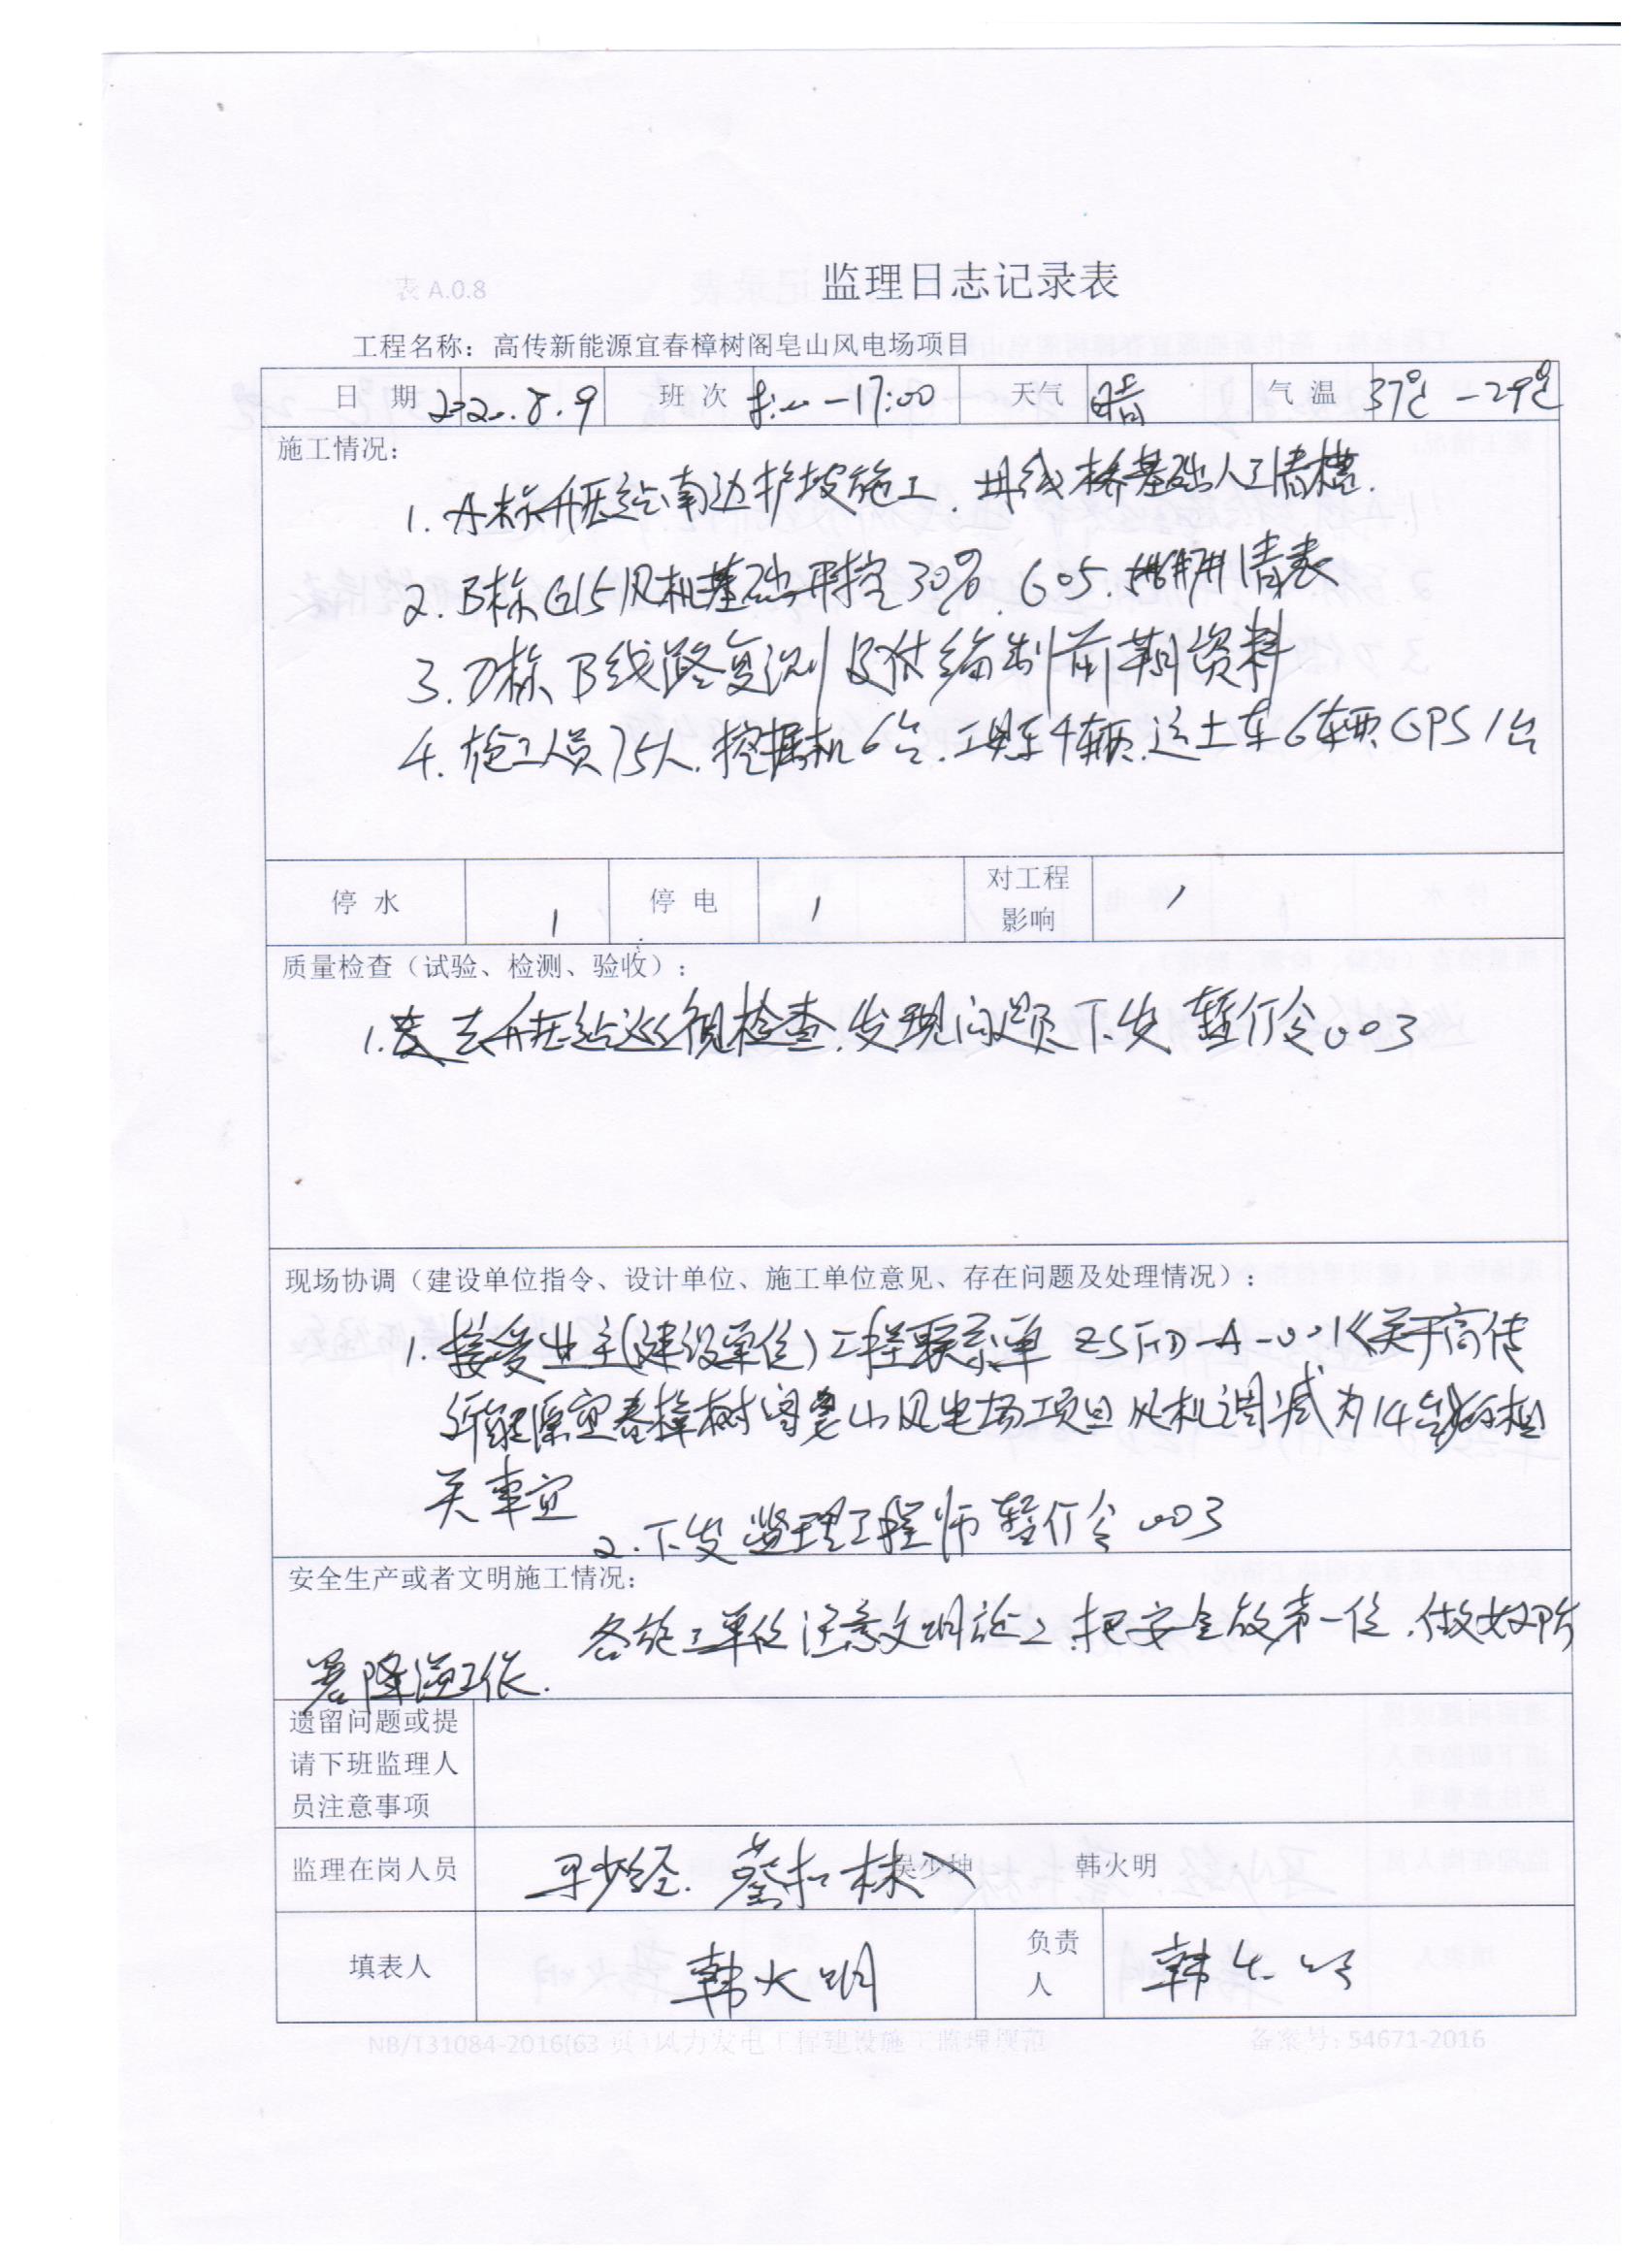 表 A.0.8
监理日志记录表
工程名称：高传新能源宜春樟树阁皂山风电场项目
日 期 2020.8.9 班 次 8:00-17:00 天气 晴 气 温 37℃-29℃
施工情况：
1. A标升压站南边护坡施工、进线桥基础人工清槽.
2. B标G15风机基础开挖30%. G05. 清表
3. D标B线路复测及 编制前期资料
4. 施工人员75人. 挖掘机6台. 工具车4辆. 运土车6辆. GPS1台
停 水 / 停 电 / 对工程影响 /
质量检查（试验、检测、验收）：
1. 去升压站巡视检查. 发现问题下发暂行令003
现场协调（建设单位指令、设计单位、施工单位意见、存在问题及处理情况）：
1. 接受业主(建设单位)工程联系单 ZSFD-A-001《关于高传
新能源宜春樟树阁皂山风电场项目风机调减为14台的相
关事宜
2. 下发监理工程师暂行令003
安全生产或者文明施工情况：
各施工单位注意文明施工. 把安全放第一位. 做好防
暑降温工作.
遗留问题或提
请下班监理人
员注意事项
监理在岗人员 蔡 林 吴少坤 韩火明
填表人 韩火明 负责人 韩火明
NB/T31084-2016(63 页)风力发电工程建设施工监理规范 备案号: 54671-2016